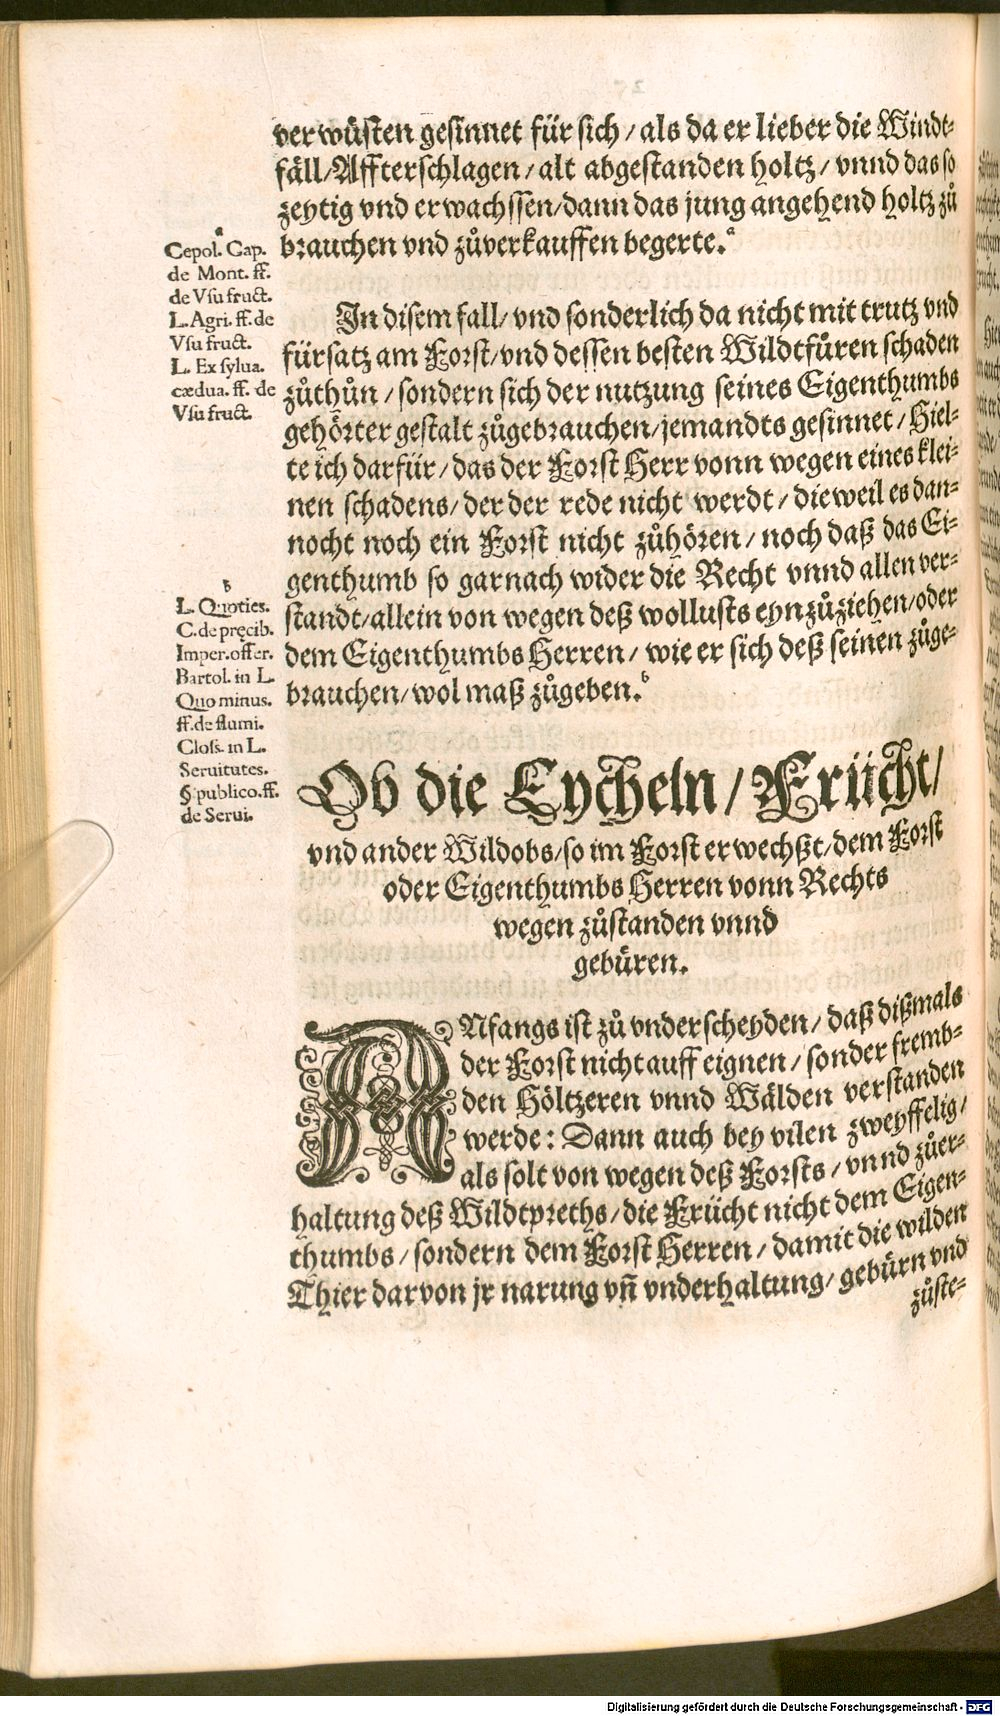 verwüsten gesinnet für sich / als da er lieber die Windt-
fäll/Affterschlagen / alt abgestanden holtz / vnnd das so
zeytig vnd erwachssen/dann das jung angehend holtz zů
brauchen vnd zůverkauffen begerte.ᵃ
a
Cepol. Cap.
de Mont. ff.
de Vsu fruct.
L. Agri. ff. de
Vsu fruct.
L. Ex sylua.
cædua. ff. de
Vsu fruct.
In disem fall/ vnd sonderlich da nicht mit trutz vnd
fürsatz am Forst/vnd dessen besten Wildtfůren schaden
zůthůn / sondern sich der nutzung seines Eigenthumbs
gehörter gestalt zůgebrauchen/jemandts gesinnet / Hiel-
te ich darfür / das der Forst Herr vonn wegen eines klei-
nen schadens/ der der rede nicht werdt / dieweil es dan-
nocht noch ein Forst nicht zůhören / noch daß das Ei-
genthumb so gar nach wider die Recht vnnd allen ver-
standt/allein von wegen deß wollusts eynzůziehen/oder
dem Eigenthumbs Herren / wie er sich deß seinen zůge-
brauchen/wol maß zůgeben.ᵇ
b
L. Quoties.
C. de pręcib.
Imper. offer.
Bartol. in L.
Quo minus.
ff. de flumi.
Closs. in L.
Seruitutes.
§ publico. ff.
de Serui.
Ob die Eycheln / Früicht/
vnd ander Wildobs/so im Forst erwechßt/dem Forst
oder Eigenthumbs Herren vonn Rechts
wegen zůstanden vnnd
gebüren.
ANfangs ist zů vnderscheyden / daß dißmals
der Forst nicht auff eignen / sonder fremb-
den Höltzeren vnnd Wälden verstanden
werde: Dann auch bey vilen zweyffelig/
als solt von wegen deß Forsts / vnnd zůer-
haltung deß Wildtpreths / die Früicht nicht dem Eigen-
thumbs / sondern dem Forst Herren / damit die wilden
Thier darvon jr narung vñ vnderhaltung / gebürn vnd
zůste-
Digitalisierung gefördert durch die Deutsche Forschungsgemeinschaft - DFG